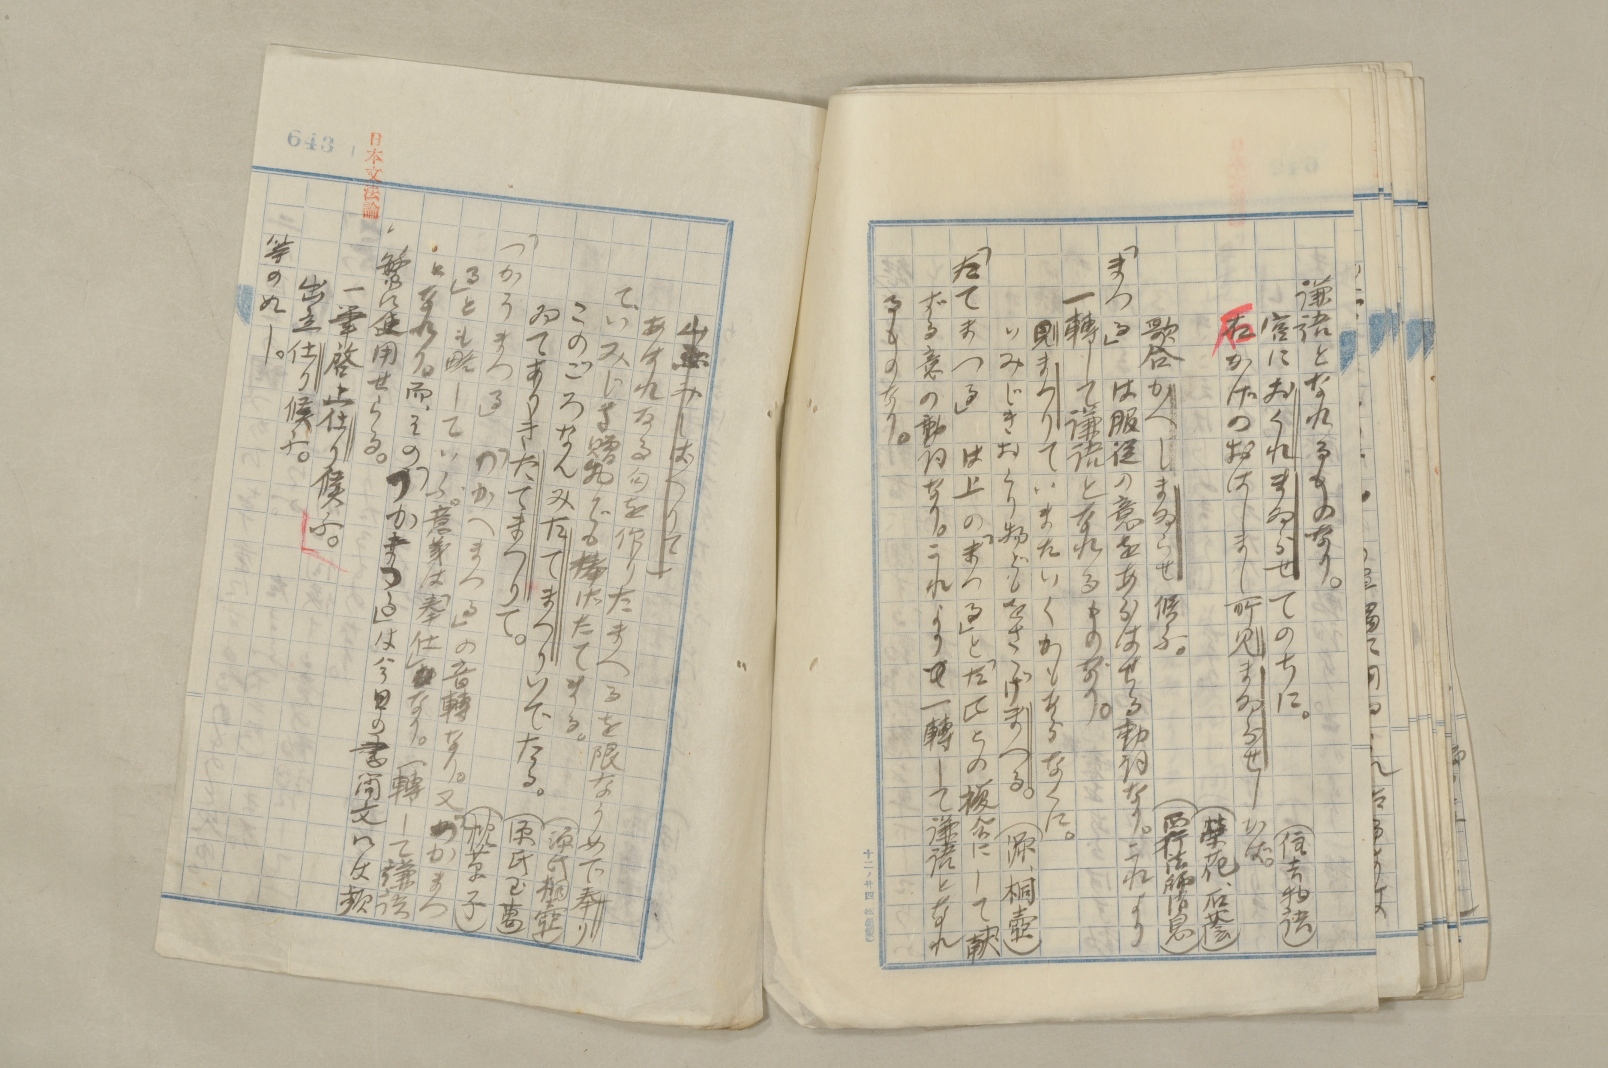 謙語となれるものなり。
宮におくれまゐらせてのちに。（住吉物語）
右かたのおはしまし所見まゐらせしかば。（榮花、石蔭）
歌合かへしまゐらせ候ふ。（西行法師消息）
「まつる」は服從の意をあらはせる動詞なり。これより
一轉して謙語となれるものなり。
見まつりていまたいくかもあらなくに。
いみじきおくり物どもをさゝげまつる。（源、桐壺）
「たてまつる」は上の「まつる」と「たて」との複合にして獻
ずる意の動詞なり。これよりも一轉して謙語となれ
るものなり。
日本文法論
643
あはれなる句を作りたまへるを限なうめで奉り
ていみじき贈物ども捧げたてまつる。（源氏桐壺）
このごろなんみたてまつりいでたる。（源氏玉葛）
ゐてありきたてまつりて。（枕草子）
「つかうまつる」「つかへまつる」の音轉なり。又「つかまつ
る」とも略していふ。意義は奉仕なり。一轉して謙語
となれり。而、その「つかまつる」は今日の書簡文には頻
繁に使用せらる。
一筆啓上仕り候ふ。
出立仕り候ふ。
等の如し。